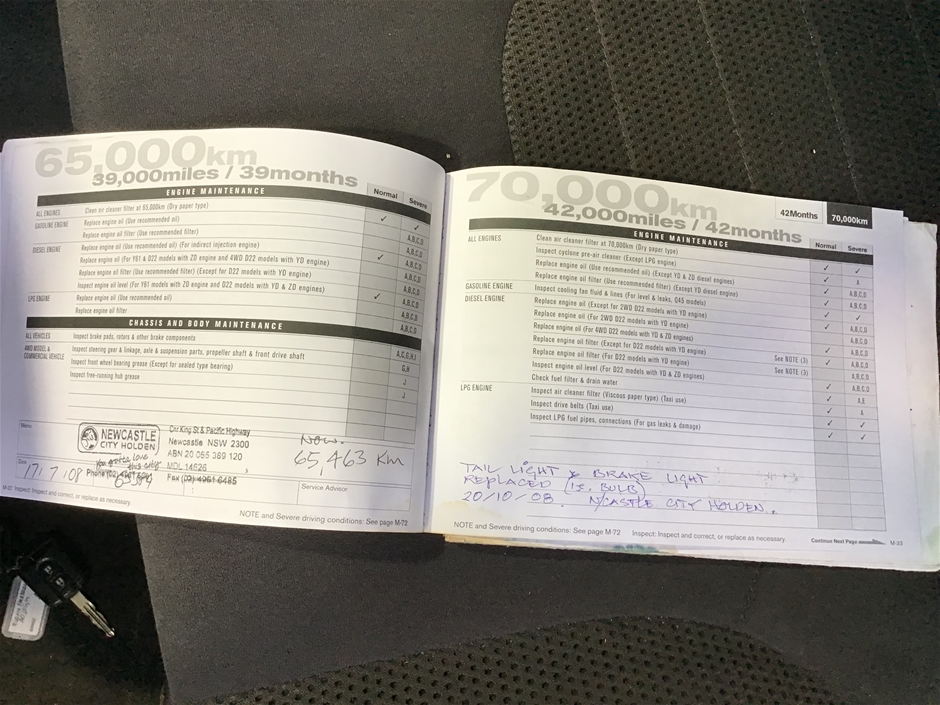 65,000km
39,000miles / 39months
ENGINE MAINTENANCE
Normal Severe
ALL ENGINES Clean air cleaner filter at 65,000km (Dry paper type) ✓
GASOLINE ENGINE Replace engine oil (Use recommended oil) ✓
Replace engine oil filter (Use recommended filter) A,B,C,D
DIESEL ENGINE Replace engine oil (Use recommended oil) (For indirect injection engine) A,B,C,D
Replace engine oil (For Y61 & D22 models with ZD engine and 4WD D22 models with YD engine) ✓ A,B,C,D
Replace engine oil filter (Use recommended filter) (Except for D22 models with YD engine) A,B,C,D
Inspect engine oil level (For Y61 models with ZD engine and D22 models with YD & ZD engines) A,B,C,D
LPG ENGINE Replace engine oil (Use recommended oil) ✓ A,B,C,D
Replace engine oil filter A,B,C,D
CHASSIS AND BODY MAINTENANCE
ALL VEHICLES Inspect brake pads, rotors & other brake components A,C,G,H,I
4WD MODEL & COMMERCIAL VEHICLE Inspect steering gear & linkage, axle & suspension parts, propeller shaft & front drive shaft G,H
Inspect front wheel bearing grease (Except for sealed type bearing) J
Inspect free-running hub grease J
Memo
NEWCASTLE
CITY HOLDEN
Cnr King St & Pacific Highway
Newcastle NSW 2300
ABN 20 055 389 120
MDL 14526
Phone (02) Fax (02) 4961 6485
NOW.
65,463 Km
Date
17.7.08
Service Advisor
M-32 Inspect: Inspect and correct, or replace as necessary.
NOTE and Severe driving conditions: See page M-72
70,000km
42,000miles / 42months
42Months 70,000km
ENGINE MAINTENANCE
Normal Severe
ALL ENGINES Clean air cleaner filter at 70,000km (Dry paper type)
Inspect cyclone pre-air cleaner (Except LPG engine)
Replace engine oil (Use recommended oil) (Except YD & ZD diesel engines)
Replace engine oil filter (Use recommended filter) (Except YD diesel engine)
GASOLINE ENGINE Inspect cooling fan fluid & lines (For level & leaks, Q45 models)
DIESEL ENGINE Replace engine oil (Except for 2WD D22 models with YD engine)
Replace engine oil (For 2WD D22 models with YD engine)
Replace engine oil (For 4WD D22 models with YD & ZD engines)
Replace engine oil filter (Except for D22 models with YD engine)
Replace engine oil filter (For D22 models with YD engine) See NOTE (3)
Inspect engine oil level (For D22 models with YD & ZD engines) See NOTE (3)
Check fuel filter & drain water
LPG ENGINE Inspect air cleaner filter (Viscous paper type) (Taxi use)
Inspect drive belts (Taxi use)
Inspect LPG fuel pipes, connections (For gas leaks & damage)
TAIL LIGHT & BRAKE LIGHT
REPLACED (IE. BULB)
20/10/08 N/CASTLE CITY HOLDEN.
NOTE and Severe driving conditions: See page M-72 Inspect: Inspect and correct, or replace as necessary.
Continue Next Page M-33